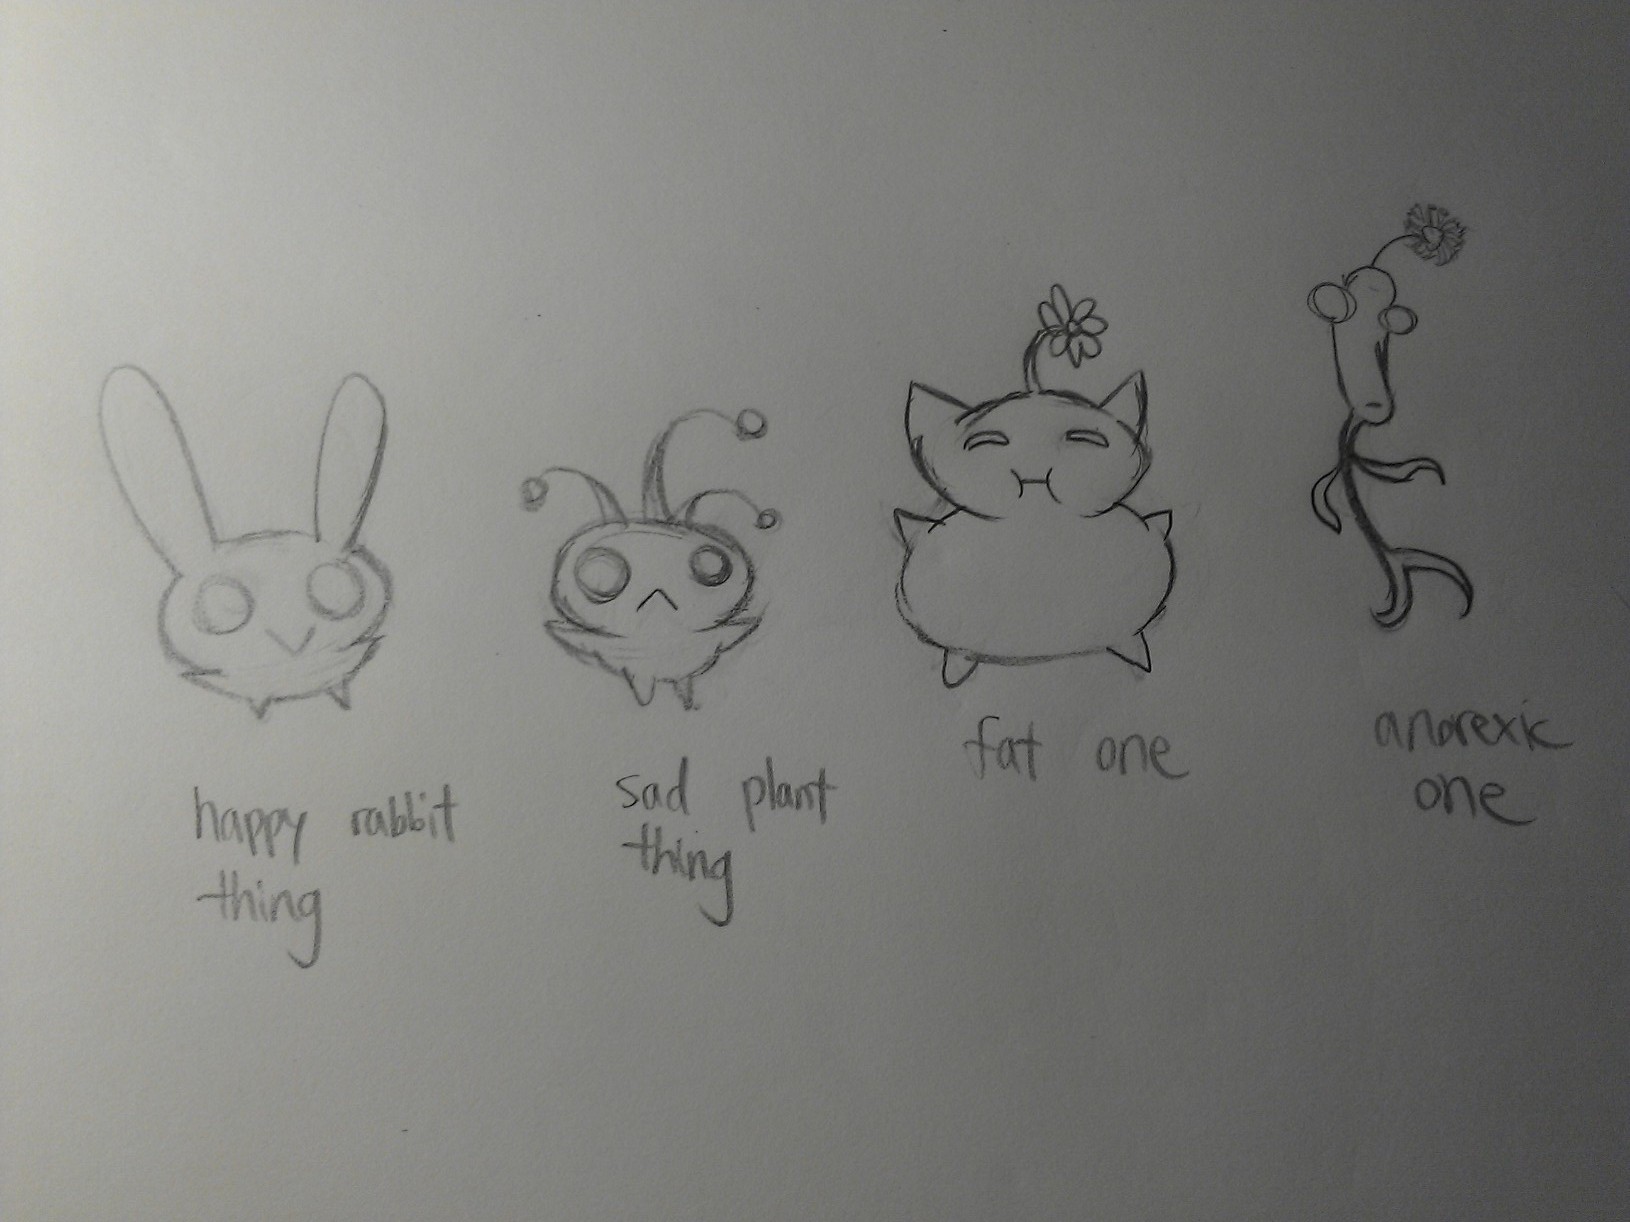 happy rabbit
thing
sad plant
thing
fat one
anorexic
one